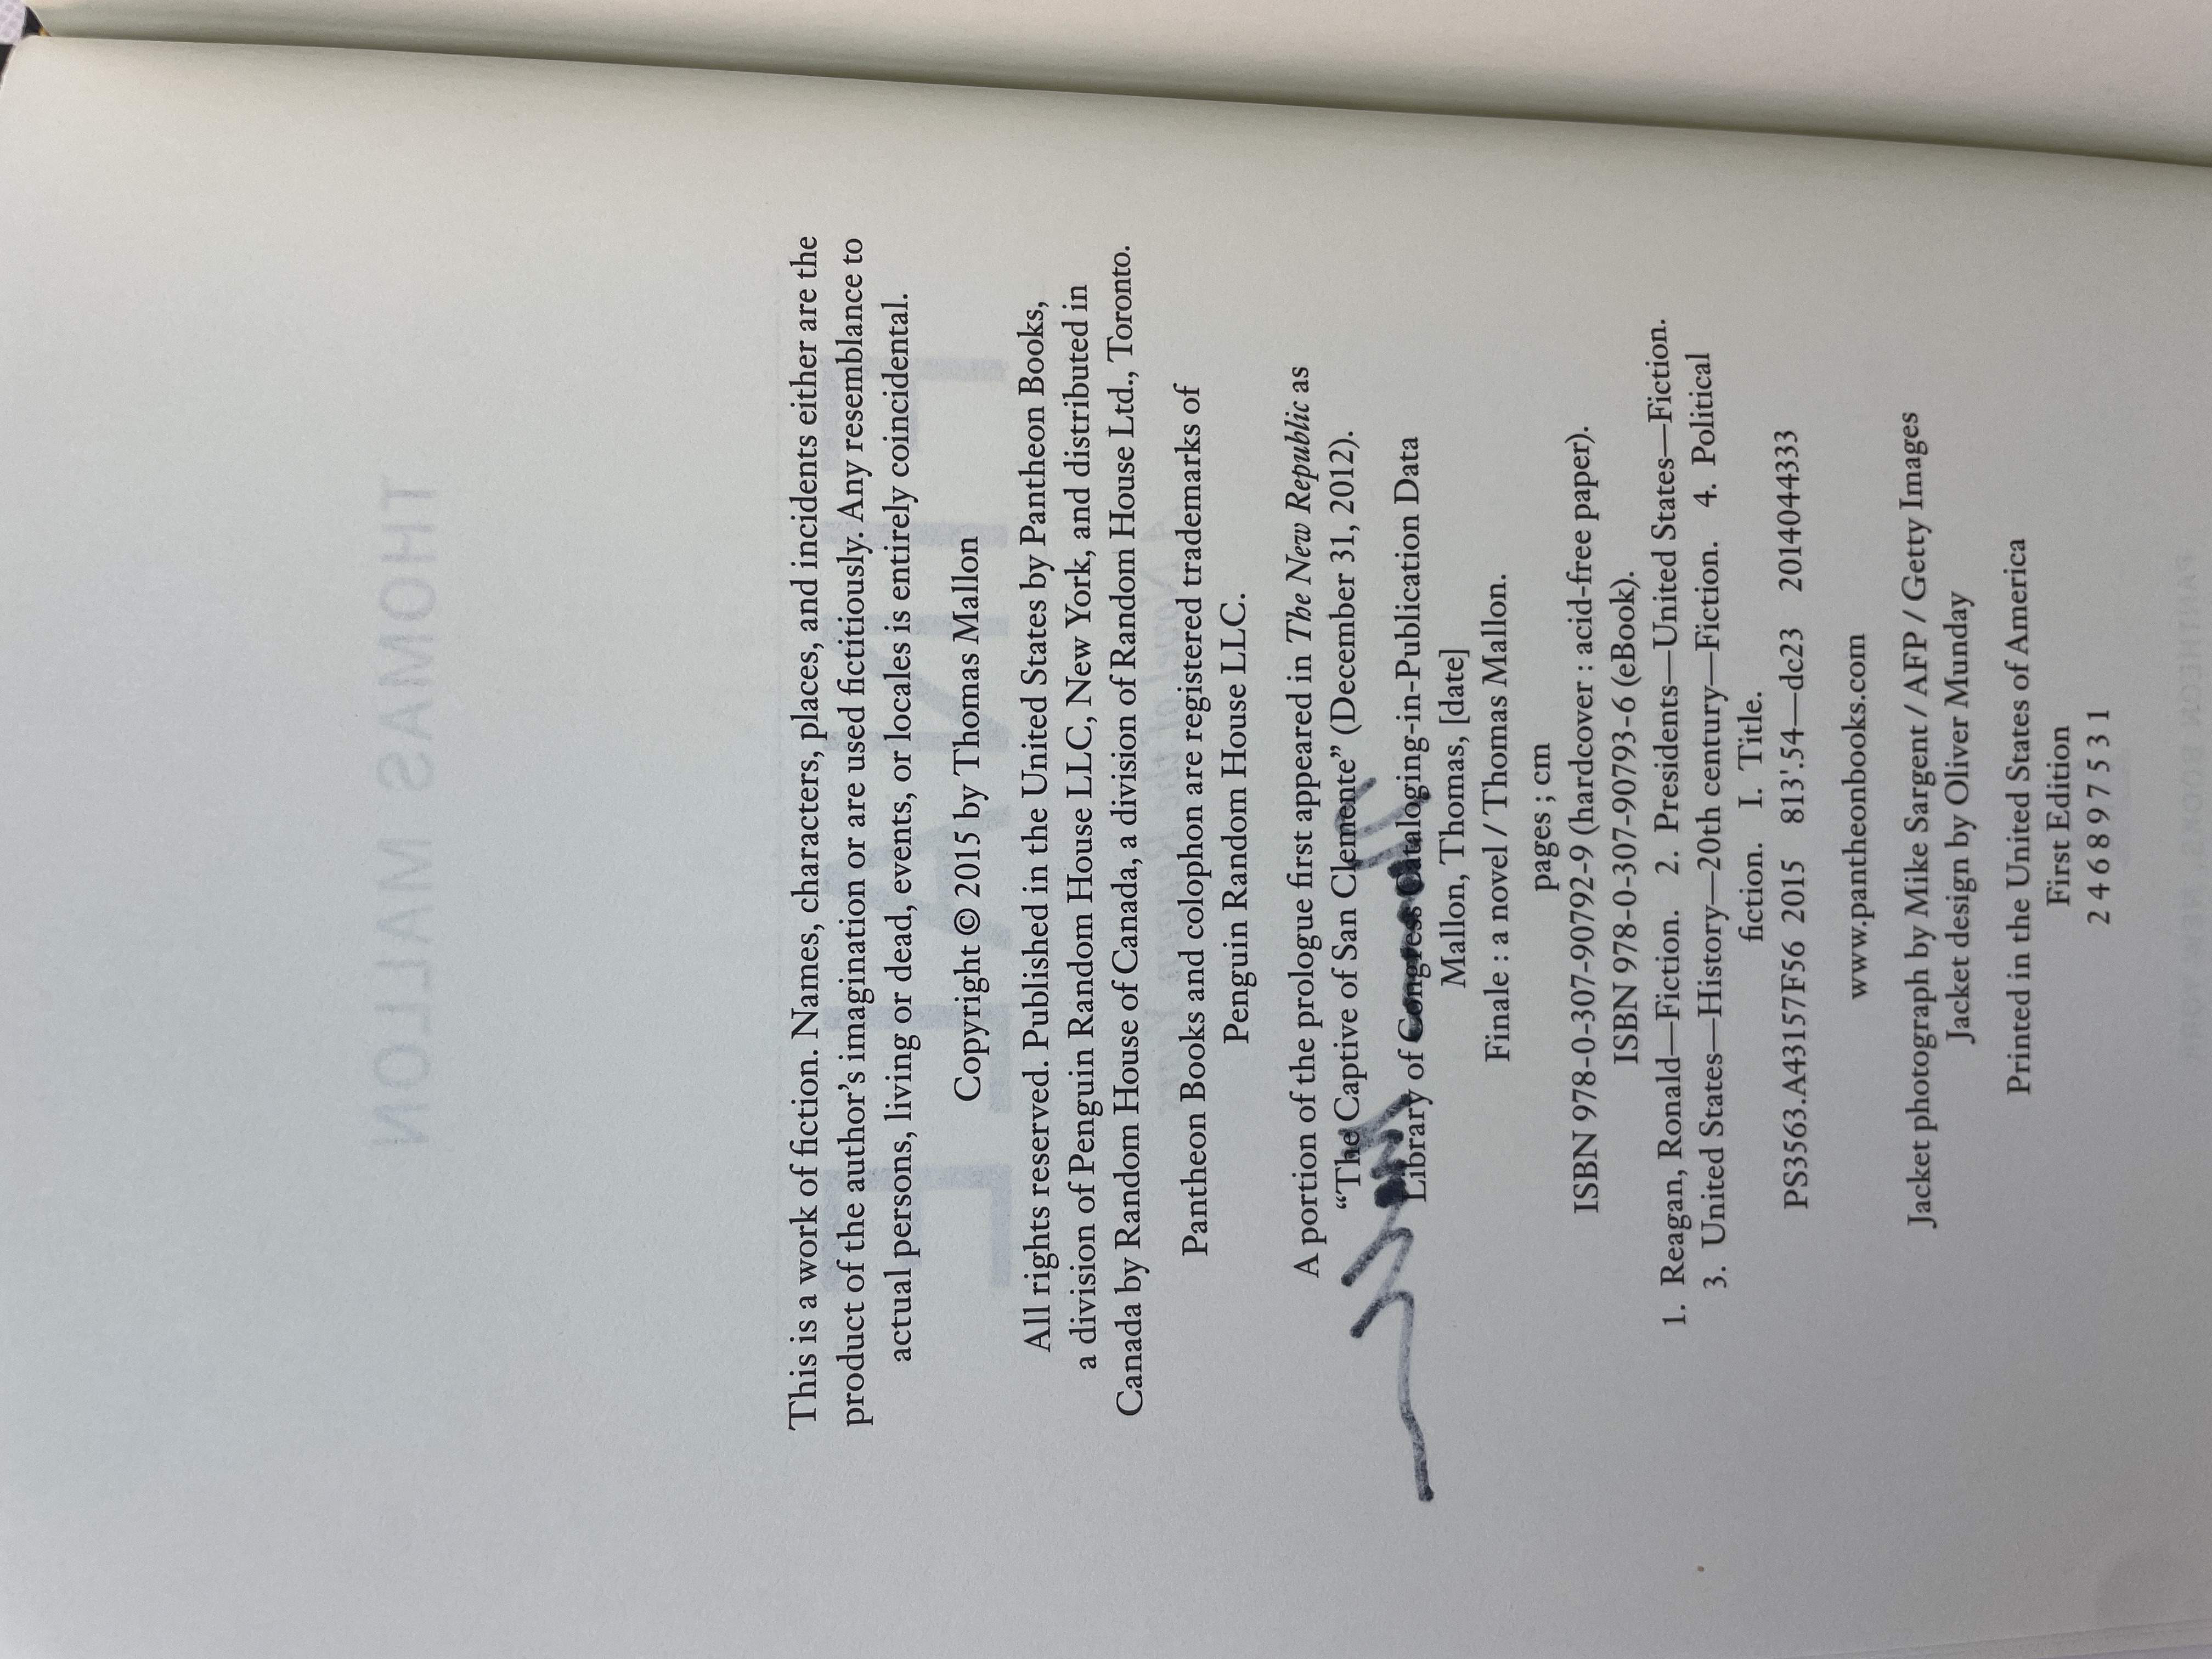 This is a work of fiction. Names, characters, places, and incidents either are the
product of the author's imagination or are used fictitiously. Any resemblance to
actual persons, living or dead, events, or locales is entirely coincidental.
Copyright © 2015 by Thomas Mallon
All rights reserved. Published in the United States by Pantheon Books,
a division of Penguin Random House LLC, New York, and distributed in
Canada by Random House of Canada, a division of Random House Ltd., Toronto.
Pantheon Books and colophon are registered trademarks of
Penguin Random House LLC.
A portion of the prologue first appeared in The New Republic as
“The Captive of San Clemente” (December 31, 2012).
Library of Congress Cataloging-in-Publication Data
Mallon, Thomas, [date]
Finale : a novel / Thomas Mallon.
pages ; cm
ISBN 978-0-307-90792-9 (hardcover : acid-free paper).
ISBN 978-0-307-90793-6 (eBook).
1. Reagan, Ronald—Fiction. 2. Presidents—United States—Fiction.
3. United States—History—20th century—Fiction. 4. Political
fiction. I. Title.
PS3563.A43157F56 2015 813'.54—dc23 2014044333
www.pantheonbooks.com
Jacket photograph by Mike Sargent / AFP / Getty Images
Jacket design by Oliver Munday
Printed in the United States of America
First Edition
2 4 6 8 9 7 5 3 1